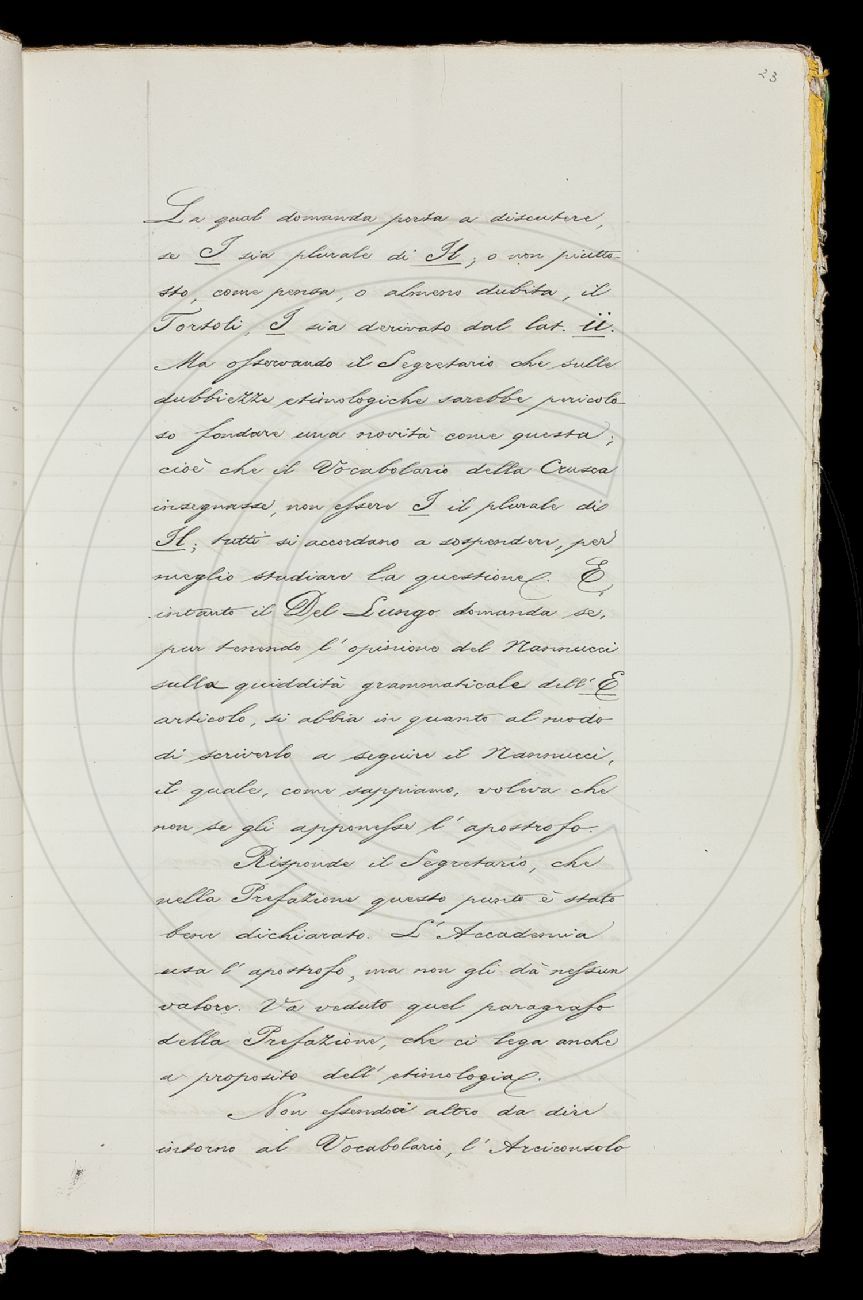 23
La qual domanda porta a discutere,
se I sia plurale di Il; o non piutto-
sto, come pensa, o almeno dubita, il
Tortoli, I sia derivato dal lat. ii.
Ma osservando il Segretario che sulle
dubbiezze etimologiche sarebbe pericolo-
so fondare una novità come questa;
cioè che il Vocabolario della Crusca
insegnasse, non essere I il plurale di
Il; tutti si accordano a sospendere, per
meglio studiare la questione. E,
intanto il Del Lungo domanda se,
pur tenendo l'opinione del Nannucci
sulla quiddità grammaticale dell'E
articolo, si abbia in quanto al modo
di scriverlo a seguire il Nannucci,
il quale, come sappiamo, voleva che
non se gli apponesse l'apostrofo.
Risponde il Segretario, che
nella Prefazione questo punto è stato
bene dichiarato. L'Accademia
usa l'apostrofo, ma non gli dà nessun
valore. Va veduto quel paragrafo
della Prefazione, che ci lega anche
a proposito dell'etimologia.
Non essendoci altro da dire
intorno al Vocabolario, l'Arciconsolo